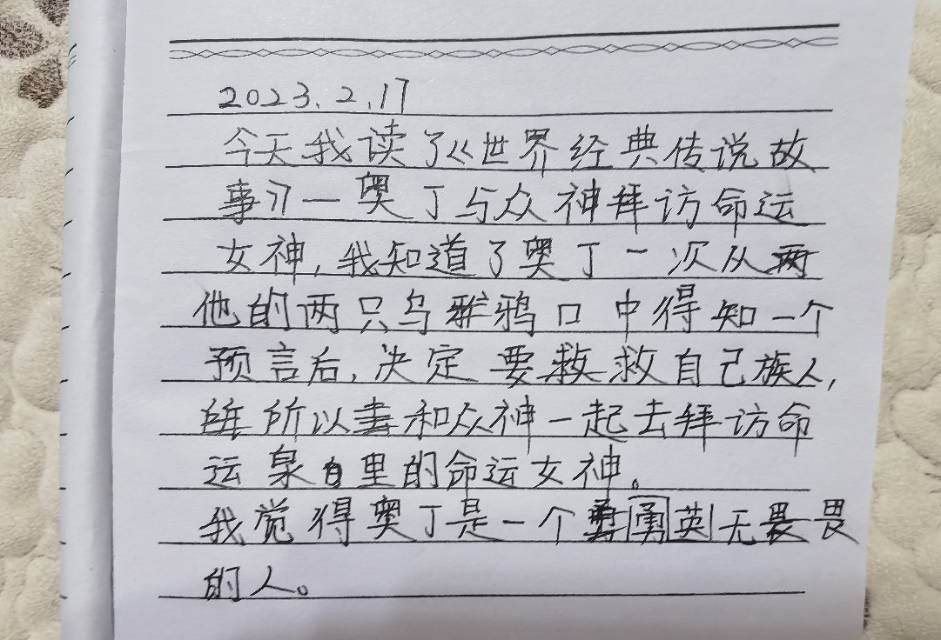 2023.2.17
今天我读了《世界经典传说故
事》一奥丁与众神拜访命运
女神,我知道了奥丁一次从
他的两只乌鸦口中得知一个
预言后,决定要救自己族人,
所以和众神一起去拜访命
运泉里的命运女神。
我觉得奥丁是一个勇英无畏
的人。